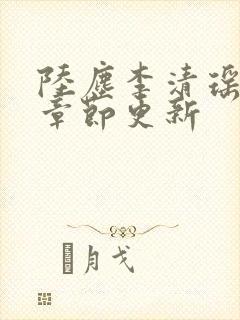 陸塵李清瑤
章節更新
月戈